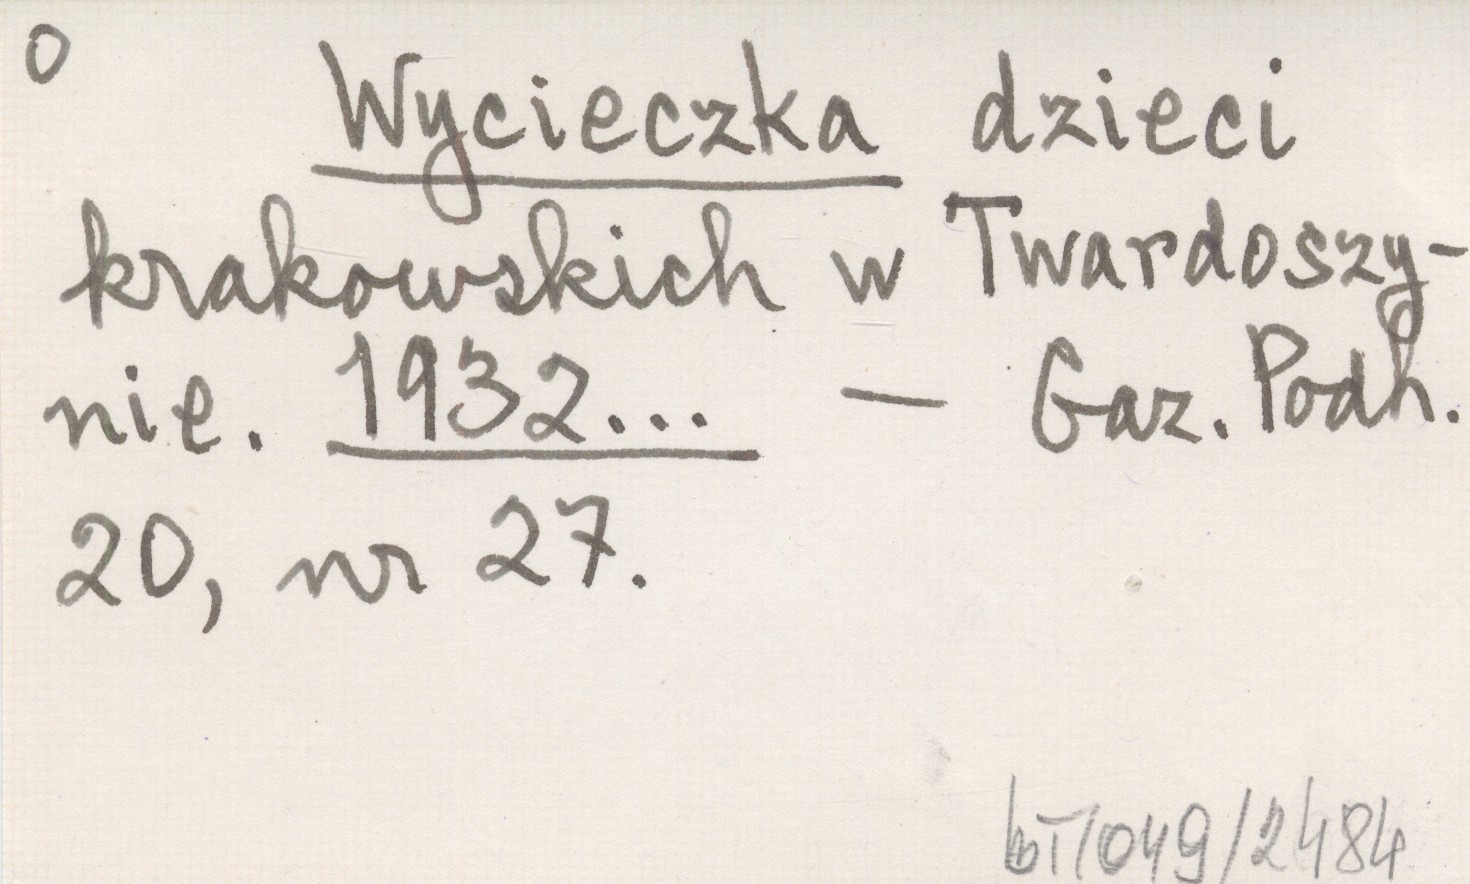 O
Wycieczka dzieci
krakowskich w Twardoszy-
nie. 1932... — Gaz. Podh.
20, nr 27.
bT/049/2484